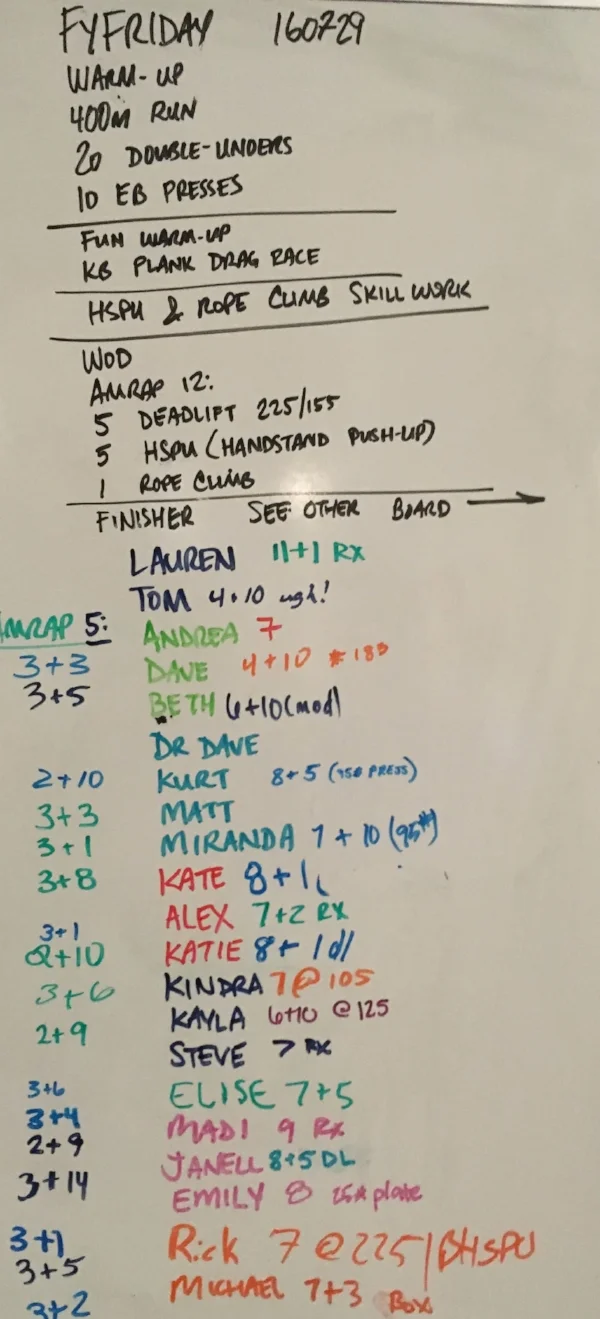 FYFRIDAY 160729
WARM-UP
400m RUN
20 DOUBLE-UNDERS
10 EB PRESSES
FUN WARM-UP
KB PLANK DRAG RACE
HSPU & ROPE CLIMB SKILL WORK
WOD
AMRAP 12:
5 DEADLIFT 225/155
5 HSPU (HANDSTAND PUSH-UP)
1 ROPE CLIMB
FINISHER SEE OTHER BOARD →
LAUREN 11+1 RX
TOM 4+10 ugh!
AMRAP 5: ANDREA 7
3+3 DAVE 4+10
3+5 BETH 6+10 (mod)
DR DAVE
2+10 KURT 8+5 (PRESS)
3+3 MATT
3+1 MIRANDA 7+10 (95#)
3+8 KATE 8+1
ALEX 7+2 RX
3+1
2+10 KATIE 8+1 dl
3+6 KINDRA 7@105
KAYLA 6+10 @125
2+9
STEVE 7 RX
3+6 ELISE 7+5
3+4 MADI 9 RX
2+9 JANELL 8+5 DL
3+14 EMILY 8 25# plate
3+1 Rick 7@225/BHSPU
3+5
MICHAEL 7+3 Box
3+2